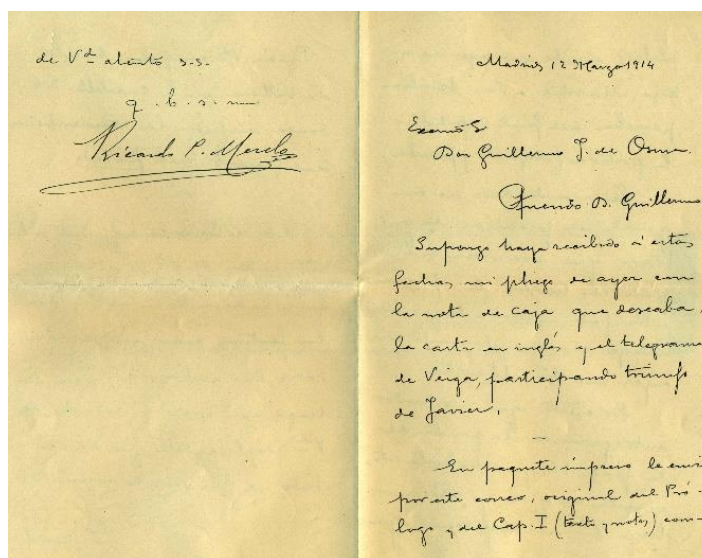 de Vd atento s.s.
q. b. s. m
Ricardo P. Merelo
Madrid 12 Marzo 1914
Excmo S
Don Guillermo J. de Osma.
Querido D. Guillermo
Supongo haya recibido á estas
fechas mi pliego de ayer con
la nota de caja que deseaba,
la carta en inglés y el telegrama
de Veiga, participando triunfo
de Javier.
En paquete impreso le envi
por este correo, original del Pró-
logo y del Cap. I (texto y notas) com-